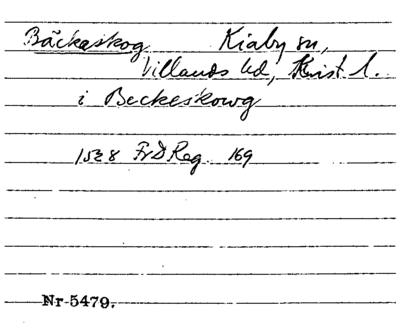 Bäckaskog Kiaby sn,
Villands hd, Krist. l.
i Beckeskowg
1528 FrDReg. 169
Nr 5479.